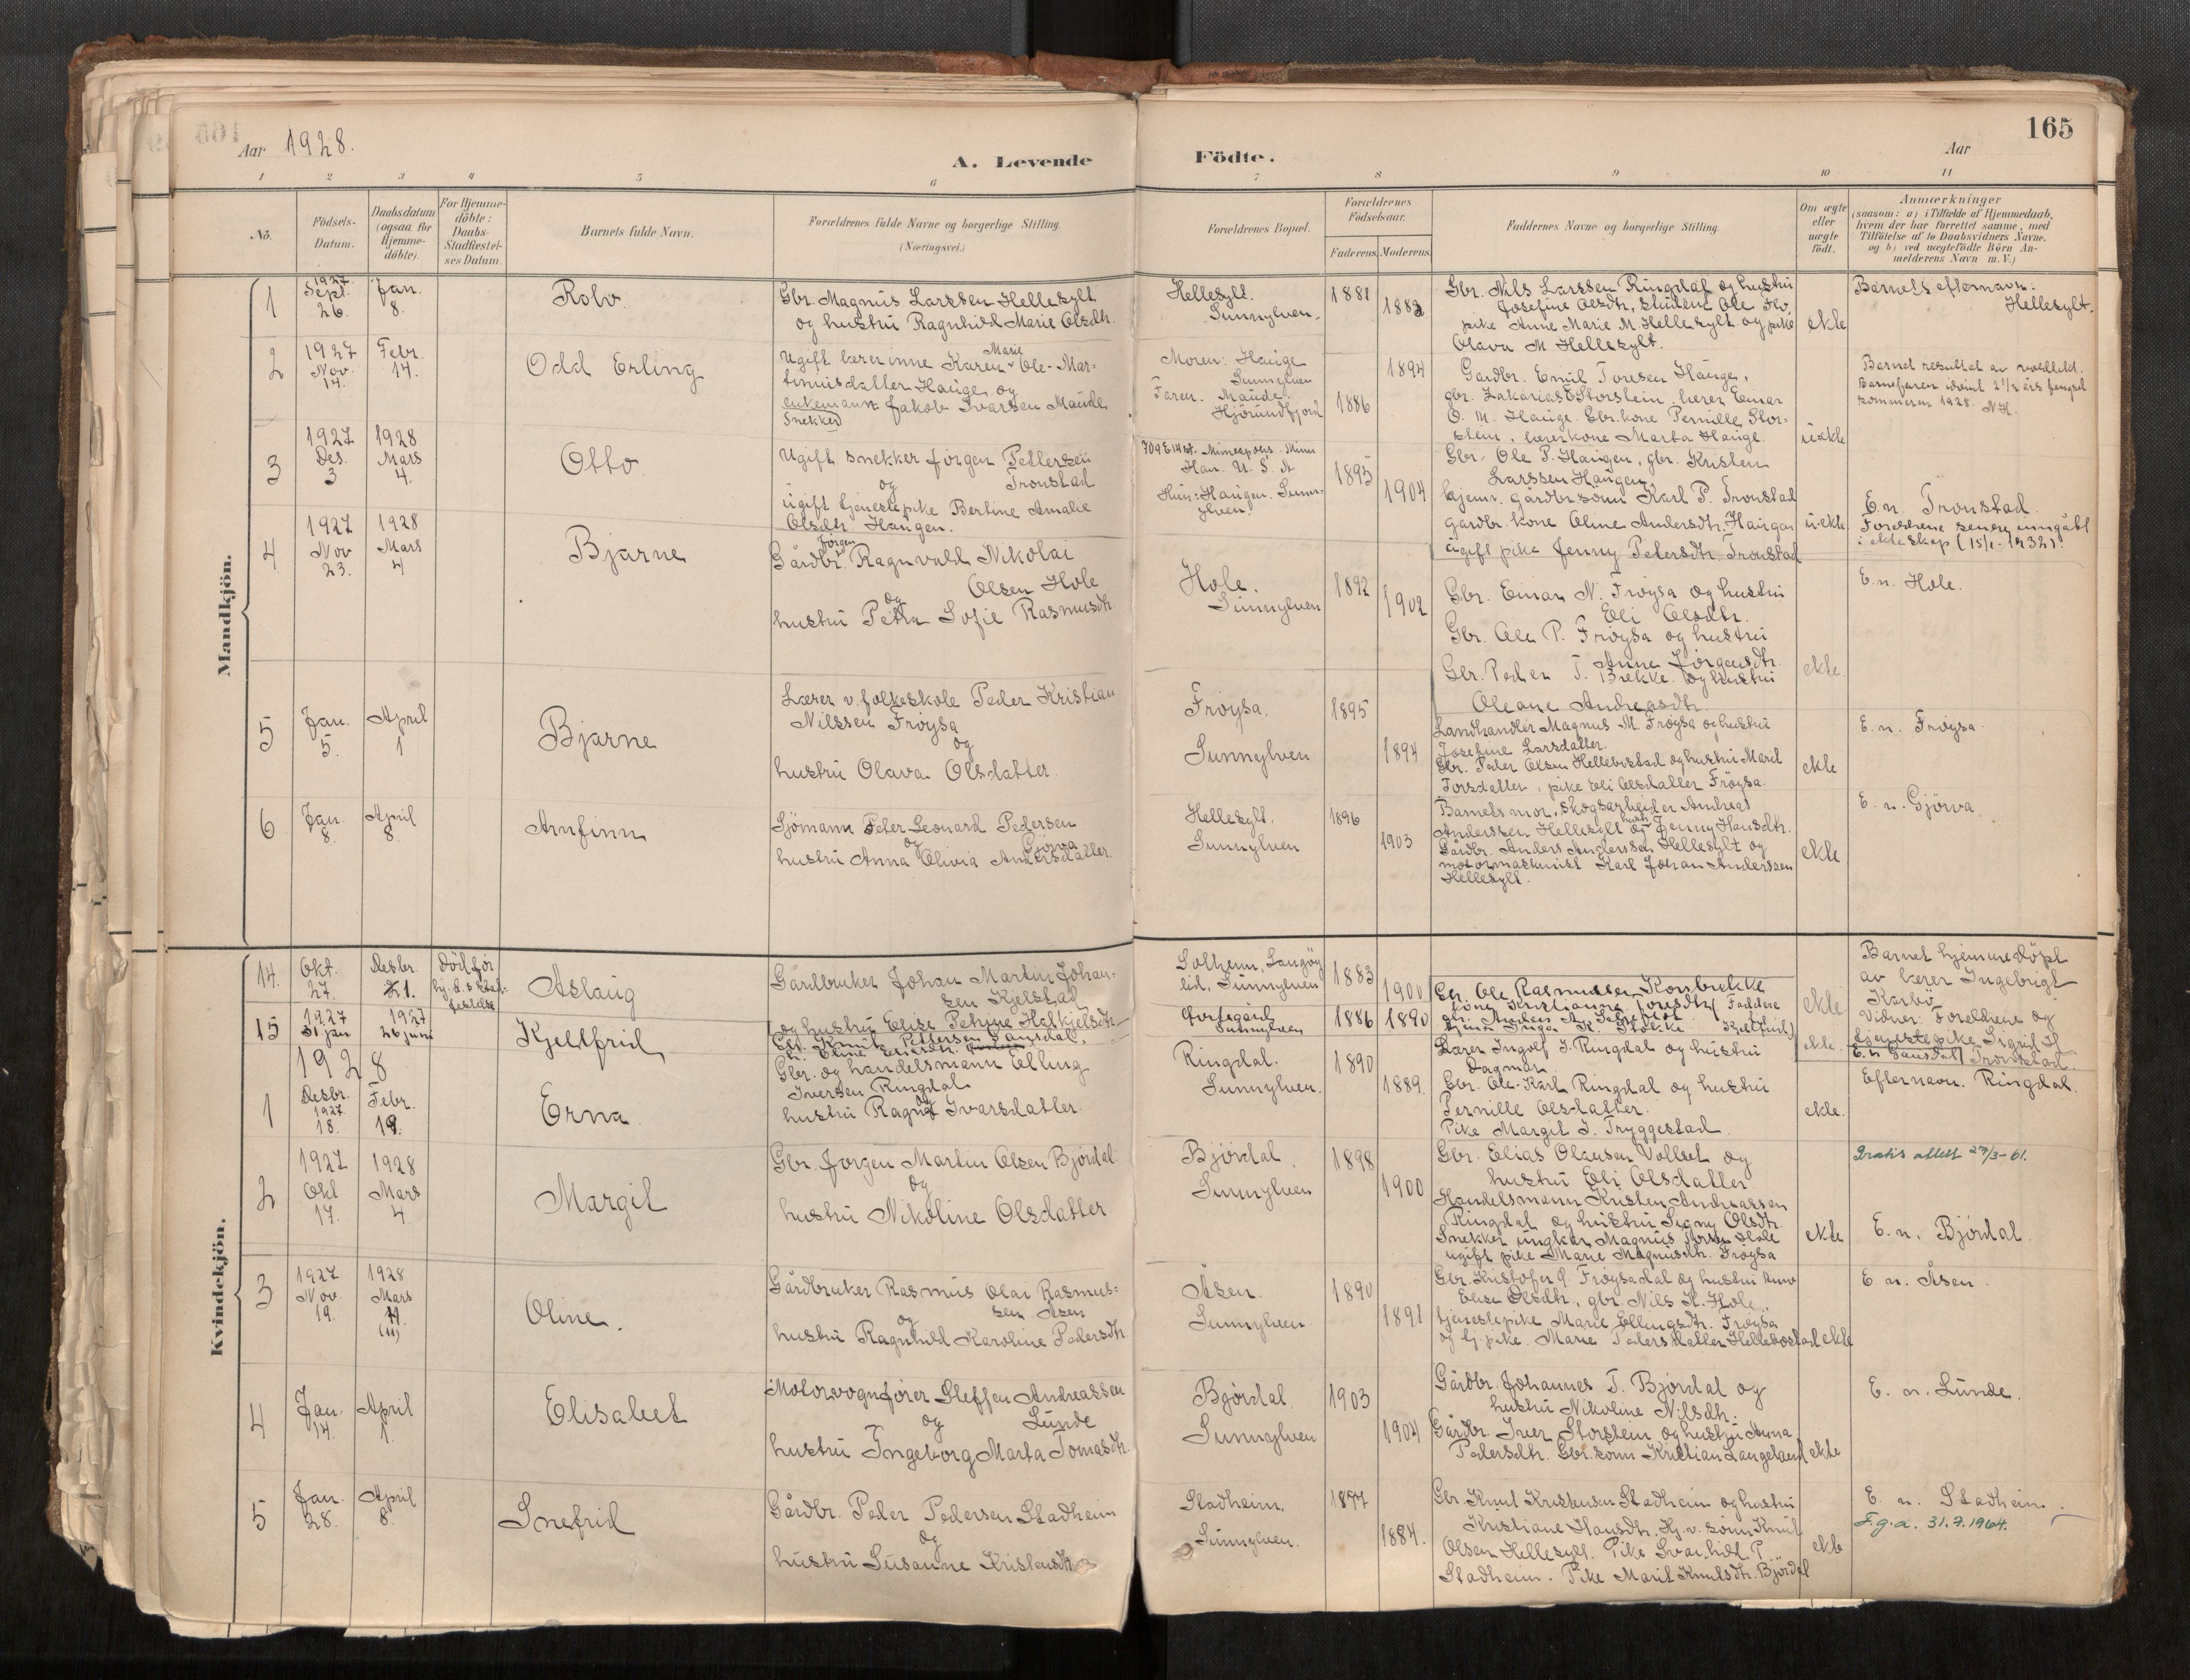 165
Aar 1928.
A. Levende Födte.
Aar
1 2 3 4 5 6 7 8 9 10 11
No.
Födsels-
Datum.
Daabsdatum
(ogsaa for
Hjemme-
döbte).
For Hjemme-
döbte:
Daabs-
Stadfæstel-
ses Datum.
Barnets fulde Navn.
Forældrenes fulde Navne og borgerlige Stilling.
(Næringsvei.)
Forældrenes Bopæl.
Forældrenes
Födselsaar.
Faderens. Moderens.
Faddernes Navne og borgerlige Stilling.
Om ægte
eller
uægte
födt.
Anmærkninger
(saasom: a) i Tilfælde af Hjemmedaab,
hvem der har forrettet samme, med
Tilföielse af to Daabsvidners Navne.
og b) ved uægtefödte Börn An-
melderens Navn m. V.)
Mandkjön.
1
1927
Sept.
26.
Jan.
8.
Rolv.
Gbr. Magnus Larssen Hellesylt
og hustru Ragnhild Marie Olsdtr.
Hellesylt.
Sunnylven.
1881
1882
Gbr. Nils Larssen Ringdal og hustru
Josefine Olsdtr, student Ole
pike Anne Marie M. Hellesylt og pike
Olava M Hellesylt.
ekte
Barnets efternavn:
Hellesylt.
2
1927
Nov.
14.
Febr.
14.
Odd Erling
Ugift lærerinne Karen Marie Ole-Mar-
tinusdatter Hauge og
enkemann Jakob Ivarsen Maude
Snekker
Moren: Hauge
Sunnylven
Faren: Maude.
Hjørundfjord
1886
1894
Gardbr. Emil Toresen Hauge,
gbr. Zakarias Storstein, lærer Einar
O. M. Hauge. Gbr.kone Pernille Stor-
stein, lærerkone Marta Hauge.
uekte
Barnet resultat av voldtekt.
Barnefaren idømt 2 1/2 års fengsel
sommeren 1928. N.H.
3
1927
Des.
3
1928
Mars
4.
Otto.
Ugift snekker Jørgen Pettersen
og Tronstad
ugift tjenestepike Bertine Amalie
Olsdtr Haugen.
709 E 14 st. Minneapolis. Minn
Han. U. S. A
Hun: Haugen. Sunn-
ylven.
1895
1904
Gbr. Ole P. Haugen, gbr. Kristen
Larssen Haugen,
hjemv. gårdbr sønn Karl P. Tronstad
gardbr. kone Oline Andersdtr. Haugen
ugift pike Jenny Petersdtr. Tronstad
uekte.
E.n. Tronstad.
Foreldrene senere inngått
ekteskap (15/1-1932).
4
1927
Nov
23.
1928
Mars
4
Bjarne
Gårdbr. Jørgen Ragnvald Nikolai
og Olsen Hole
hustru Petra Sofie Rasmusdtr.
Hole.
Sunnylven
1892
1902
Gbr. Einar N. Frøysa og hustru
Eli Olsdtr.
Gbr. Ole P. Frøysa og hustru
Anne Jørgensdtr.
Gbr. Peder T. Brekke. og hustru
Oleane Andreasdtr.
ekte
E.n. Hole.
5
Jan.
5.
April
1
Bjarne
Lærer v. folkeskole Peder Kristian
Nilssen Frøysa
og
hustru Olava Olsdatter.
Frøysa.
Sunnylven
1895
1894
Landhandler Magnus M. Frøysa og hustru
Josefine Larsdatter.
Gbr. Peder Olsen Hellebostad og hustru Marit
Torsdatter, pike Eli Olsdatter Frøysa.
ekte
E. n. Frøysa.
6
Jan.
8.
April
8.
Arnfinn
Sjømann Peter Leonard Pedersen
og Gjørva
hustru Anna Olivia Andersdatter.
Hellesylt.
Sunnylven
1896
1903
Barnets mor, skogsarbeider Andreas
Anderssen Hellesylt og hustr. Jenny Hansdtr.
Gårdbr. Anders Anderssen Hellesylt og
motormaskinist Karl Johan Anderssen
Hellesylt.
ekte
E. n. Gjörva.
Kvindekjön.
14.
Okt.
27.
Desbr.
21.
Död før
hj.d.s stad-
festelse
Aslaug
Gårdbruker Johan Martin Johan-
sen Kjelstad
og hustru Elise Petrine
Solheim, Langøy-
lid, Sunnylven
1883
1900
Gbr. Ole Rasmussen
ekte
Barnet hjemmedöpt
av lærer Ingebrigt
Karbö
Vidner: Foreldrene og
tjenestepike Sigrid H
Tronstad.
15
1927
31 jan
1927
26 juni
Kjellfrid
Gbr. Knut Pettersen Langdal,
Sunnylven
1886
1890
ekte.
E. n. Langdal
1928
1
Desbr.
1927.
18.
Febr.
19.
Erna
Gbr. og handelsmann Elling
Iversen Ringdal
og
hustru Ragna Ivarsdatter.
Ringdal.
Sunnylven.
1890
1889.
Lærer Ingolf J. Ringdal og hustru
Dagmar
Gbr. Ole-Karl Ringdal og hustru
Pernille Olsdatter.
Pike Margit J. Tryggestad.
ekte.
Efternavn. Ringdal.
2
1927
Okt
17.
1928
Mars
4.
Margit
Gbr. Jørgen Martin Olsen Bjørdal
og
hustru Nikoline Olsdatter
Bjørdal.
Sunnylven
1898
1900
Gbr. Elias Olausen Vollset og
hustru Eli Olsdatter
Handelsmann Kristen Andreassen
Ringdal og hustru Signy Olsdtr.
Snekker ungkar Magnus Hole
ugift pike Marie Magnusdtr. Frøysa
ekte
Gratis attest 27/3-61.
E. n. Bjørdal.
3
1927
Nov.
19.
1928
Mars
11.
(11)
Oline.
Gårdbruker Rasmus Olai Rasmus-
og sen Åsen
hustru Ragnhild Karoline Pedersdtr.
Åsen.
Sunnylven
1890
1891
Gbr. Kristofer O. Frøysadal og hustru Anne
Elise Olsdtr., gbr. Nils K. Hole,
tjenestepike Marie Ellingsdtr. Frøysa
og tj.pike. Marie Pedersdatter Hellebostad
ekte
E. n. Åsen.
4
Jan.
14.
April
1.
Elisabet
Motorvognfører Steffen Andreassen
og Lunde
hustru Ingeborg Marta Tomasdtr.
Bjørdal.
Sunnylven
1903
1904
Gårdbr. Johannes T. Bjørdal og
hustru Nikoline Nilsdtr.
Gårdbr. Iver Storstein og hustru Anna
Pedersdtr. Gbr.sønn Kristian Langeland
ekte
E. n. Lunde.
5
Jan.
28.
April
8.
Snefrid
Gårdbr. Peder Pedersen Stadheim
og
hustru Susanne Kristensdtr
Stadheim.
Sunnylven.
1877
1884.
Gbr. Knut Kristensen Stadheim og hustru
Kristiane Hansdtr. Hj.v. sønn Knut
Olsen Hellesylt. Pike Svanhild P.
Stadheim. Pike Marit Knutsdtr. Bjørdal
ekte
E. n. Stadheim.
F.g.a. 31.7.1964.